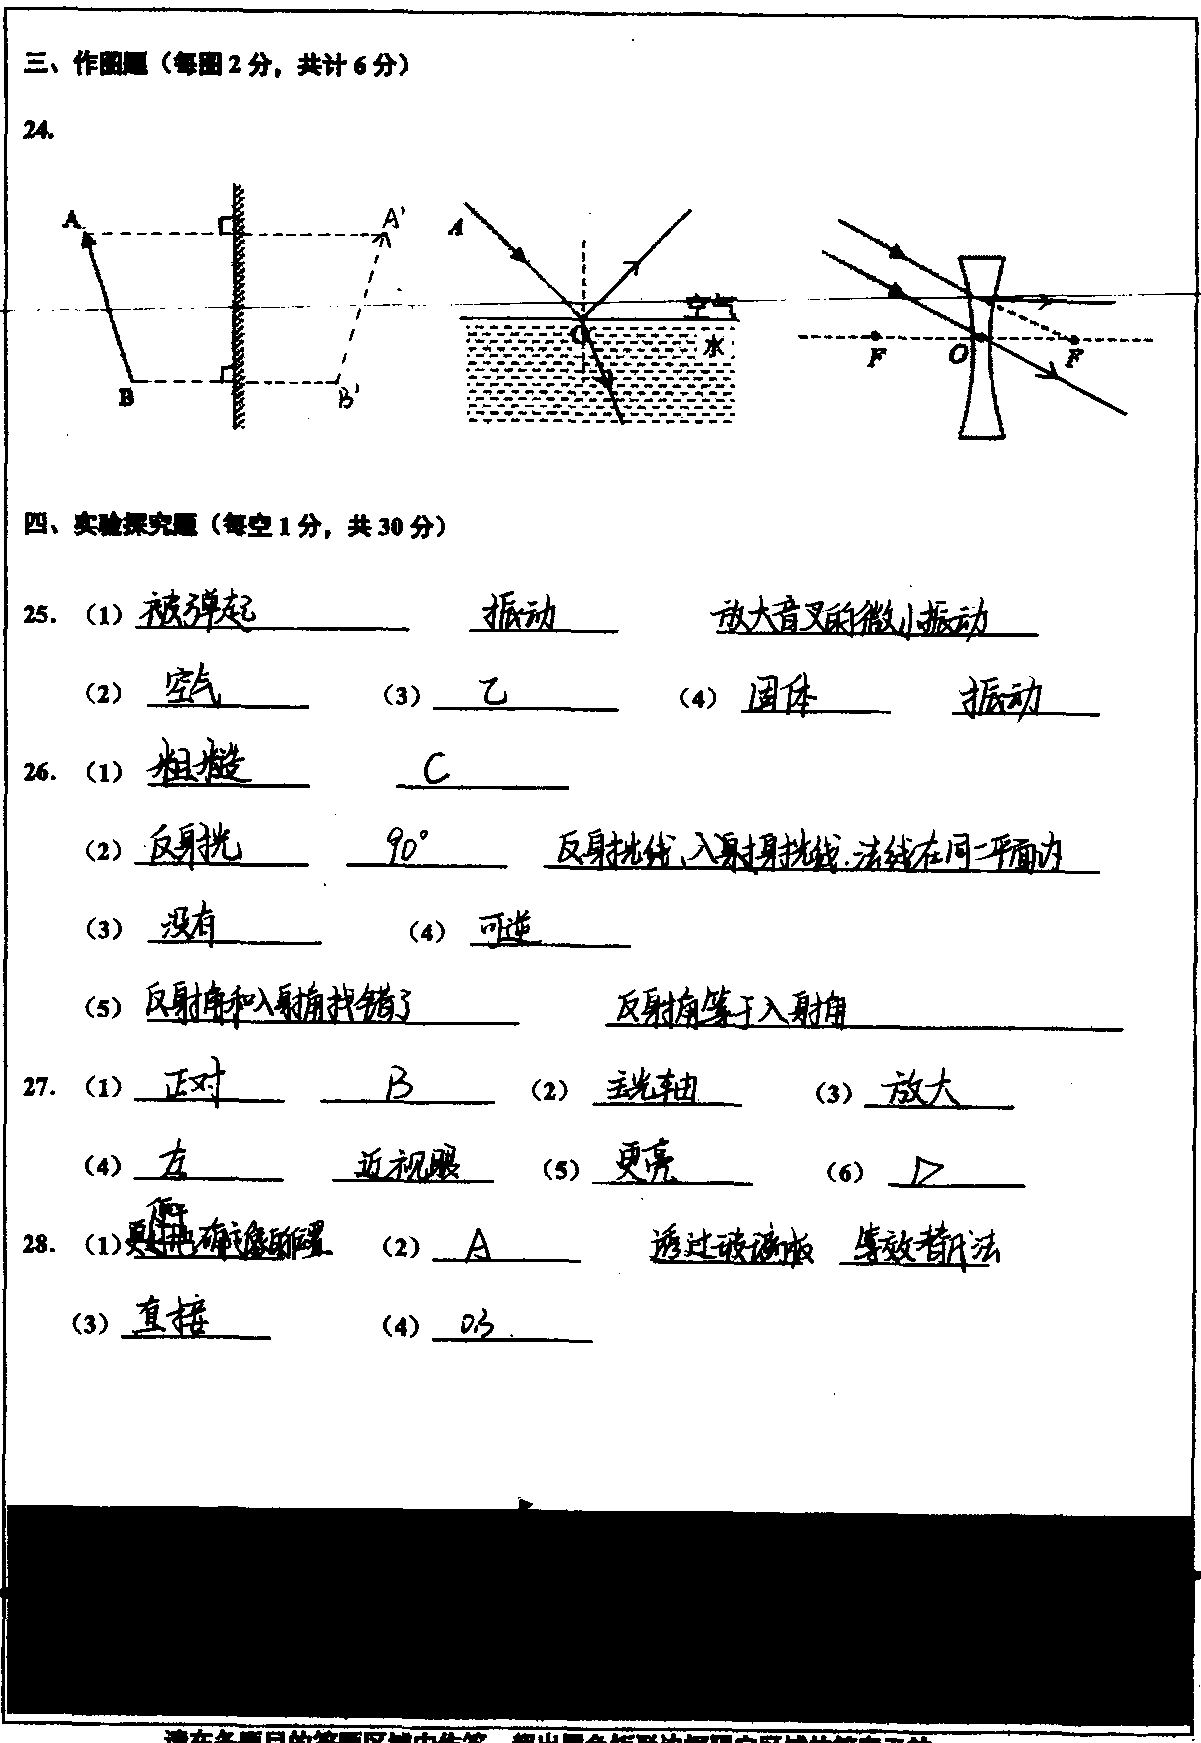 三、作图题（每图 2 分，共计 6 分）
24.
A A' B B'
A 空气 水
F O F
四、实验探究题（每空 1 分，共 30 分）
25. （1）被弹起 振动 放大音叉的微小振动
（2）空气 （3）乙 （4）固体 振动
26. （1）粗糙 C
（2）反射光 90° 反射光线、入射光线、法线在同一平面内
（3）没有 （4）可逆
（5）反射角和入射角找错了 反射角等于入射角
27. （1）正对 B （2）主光轴 （3）放大
（4）左 近视眼 （5）更亮 （6）D
28. （1）便于确定像的位置 （2）A 透过玻璃板 等效替代法
（3）直接 （4）0.3